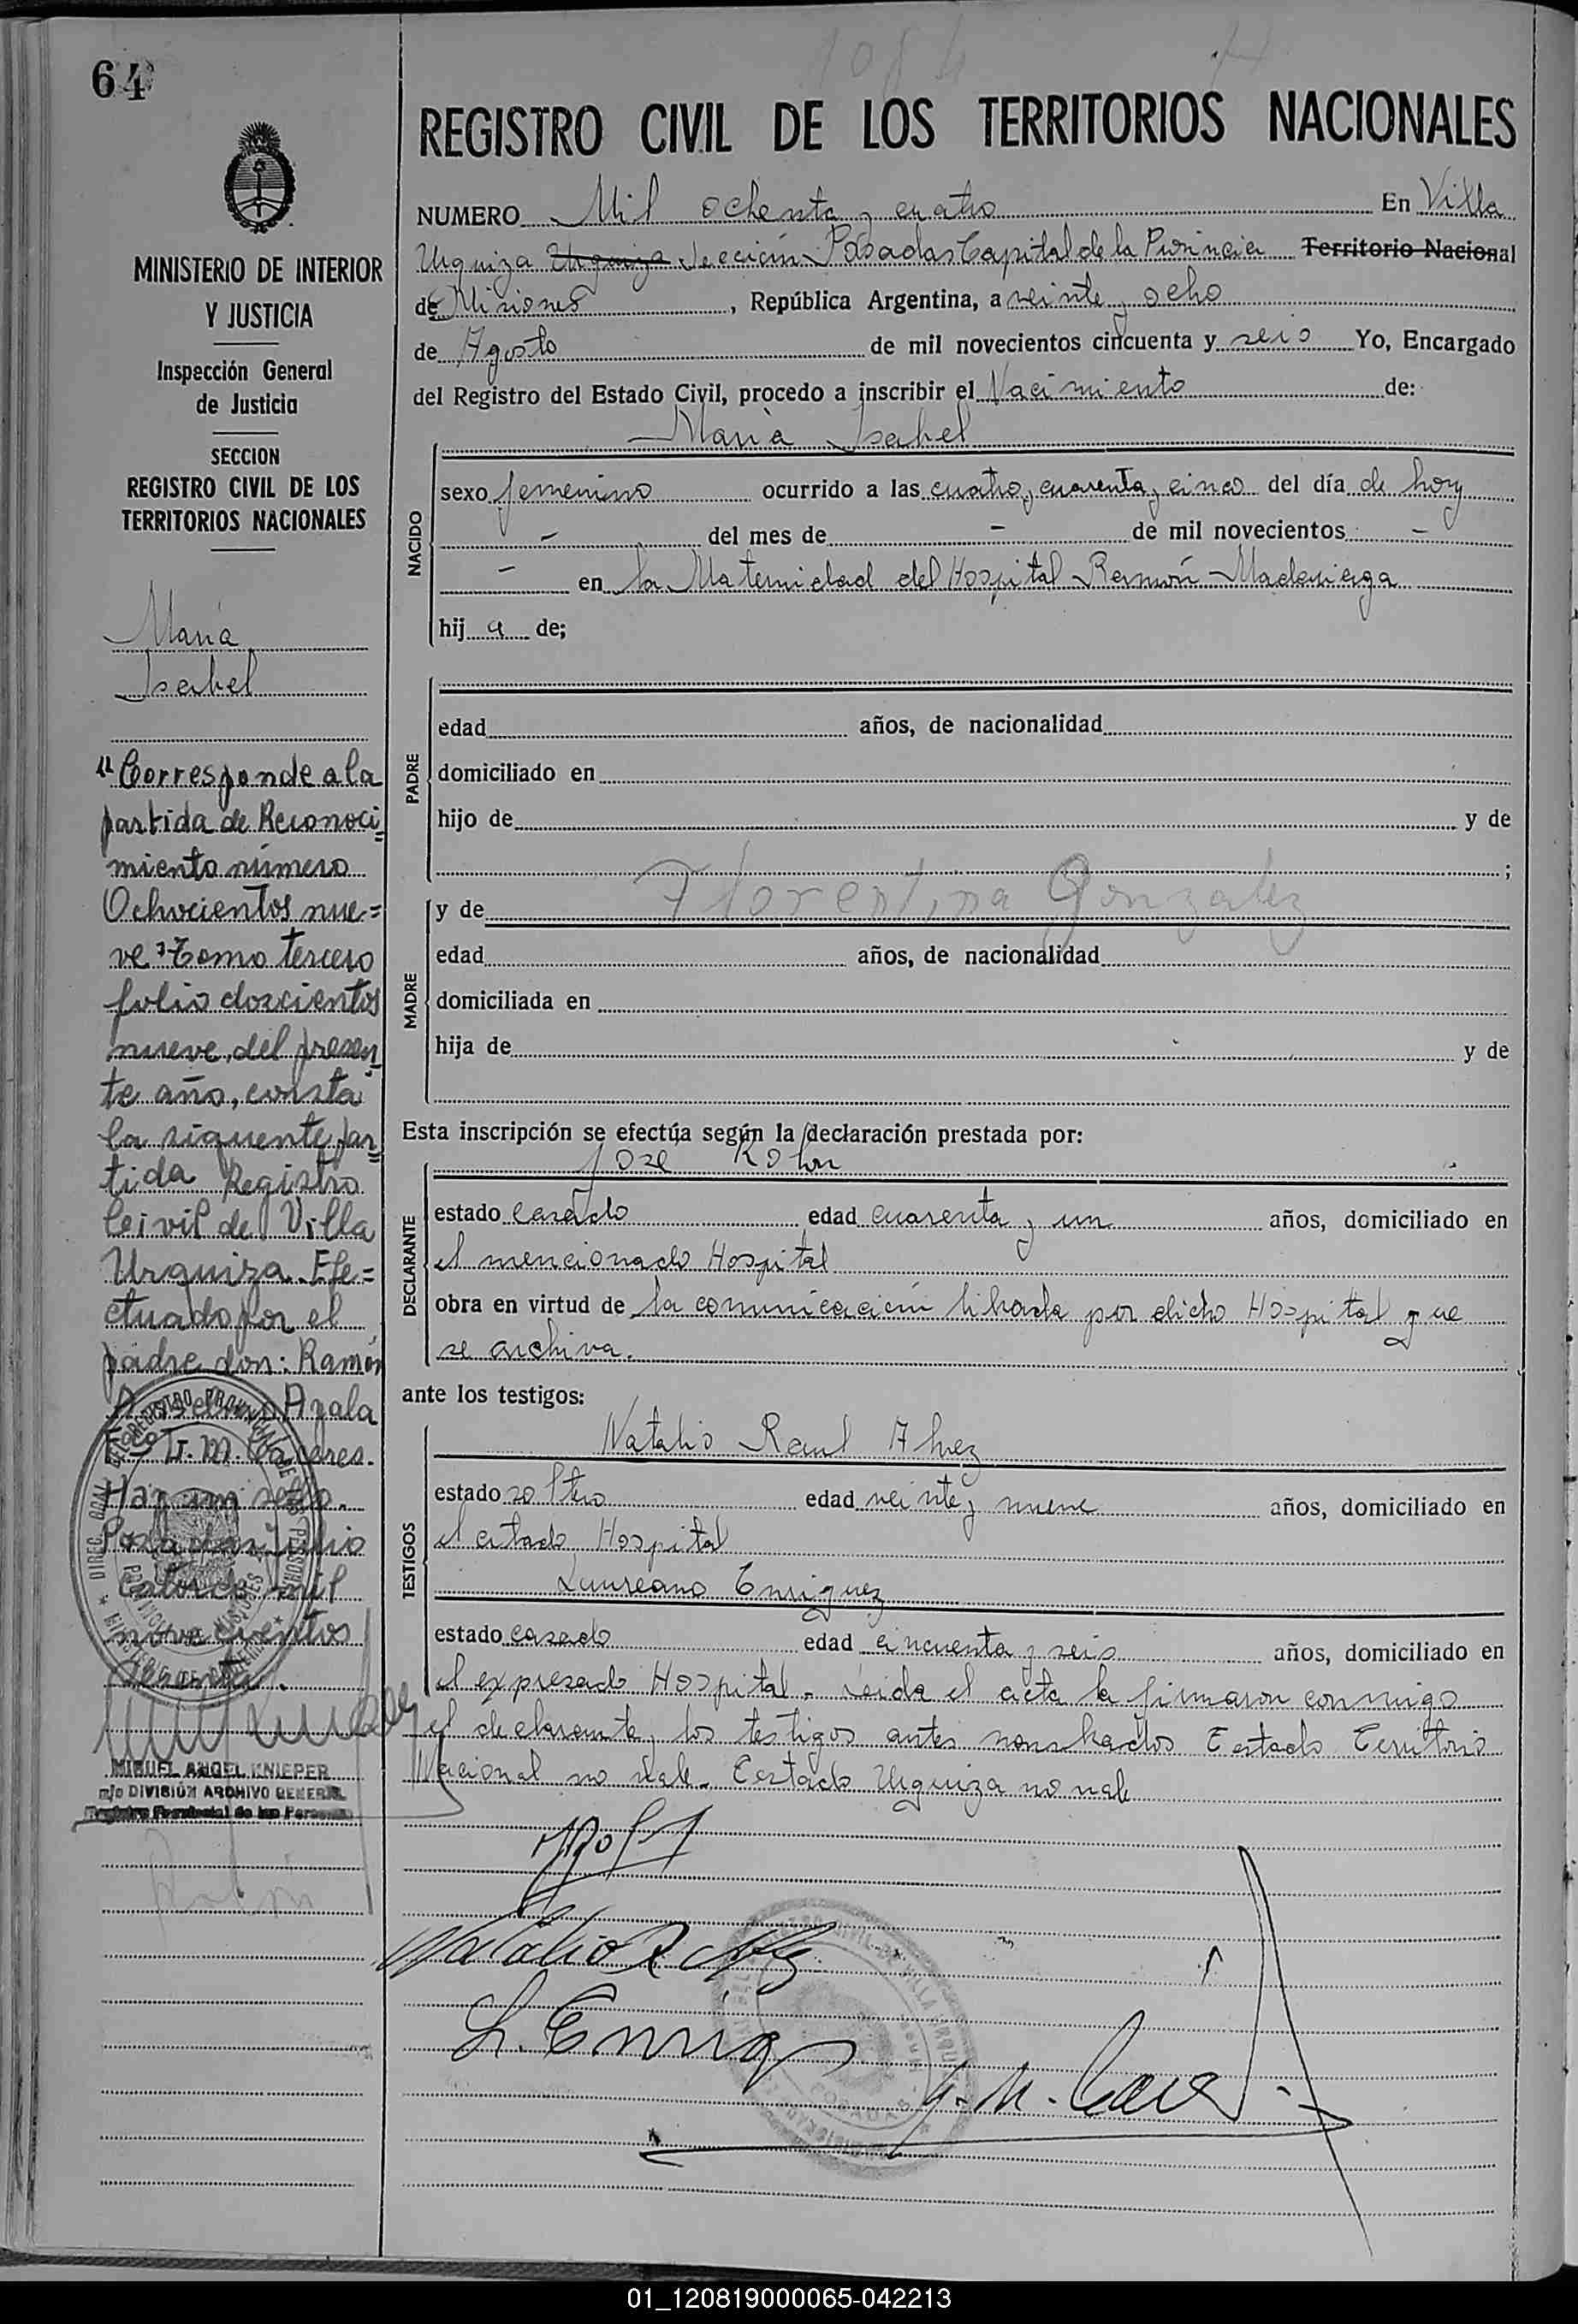 64
1084
REGISTRO CIVIL DE LOS TERRITORIOS NACIONALES
MINISTERIO DE INTERIOR
Y JUSTICIA
Inspección General
de Justicia
SECCION
REGISTRO CIVIL DE LOS
TERRITORIOS NACIONALES
María
Isabel
"Corresponde a la
partida de Reconoci=
miento número
Ochocientos nue=
ve Tomo tercero
folio doscientos
nueve, del presen=
te año, consta
la siguente par=
tida Registro
Civil de Villa
Urquiza. Efe=
ctuado por el
padre don: Ramón
Ayala
J. M. Caceres.
Hay un sello.
Posadas Julio
Catorce mil
novecientos
MIGUEL ANGEL KNIEPER
m/o DIVISIÓN ARCHIVO GENERAL
Registro Provincial de las Personas
NUMERO Mil ochenta y cuatro En Villa
Urquiza Urquiza Sección Posadas Capital de la Provincia Territorio Nacional
de Misiones, República Argentina, a veinte y ocho
de Agosto de mil novecientos cincuenta y seis Yo, Encargado
del Registro del Estado Civil, procedo a inscribir el Nacimiento de:
NACIDO
María Isabel
sexo femenino ocurrido a las cuatro y cuarenta y cinco del día de hoy
- del mes de - de mil novecientos -
- en la Maternidad del Hospital Ramón Madariaga
hij a de;
PADRE
edad años, de nacionalidad
domiciliado en
hijo de y de
;
MADRE
y de Florentina Gonzalez
edad años, de nacionalidad
domiciliada en
hija de y de
Esta inscripción se efectúa según la declaración prestada por:
DECLARANTE
José Rolon
estado casado edad cuarenta y un años, domiciliado en
el mencionado Hospital
obra en virtud de la comunicación librada por dicho Hospital que
se archiva.
ante los testigos:
TESTIGOS
Natalio Raul
estado soltero edad veinte y nueve años, domiciliado en
el citado Hospital
Laureano Enriquez
estado casado edad cincuenta y seis años, domiciliado en
el expresado Hospital. Leida el acta la firmaron conmigo
el declarante y los testigos antes nombrados Testado Territorio
Nacional no vale. Testado Urquiza no vale
01_120819000065-042213